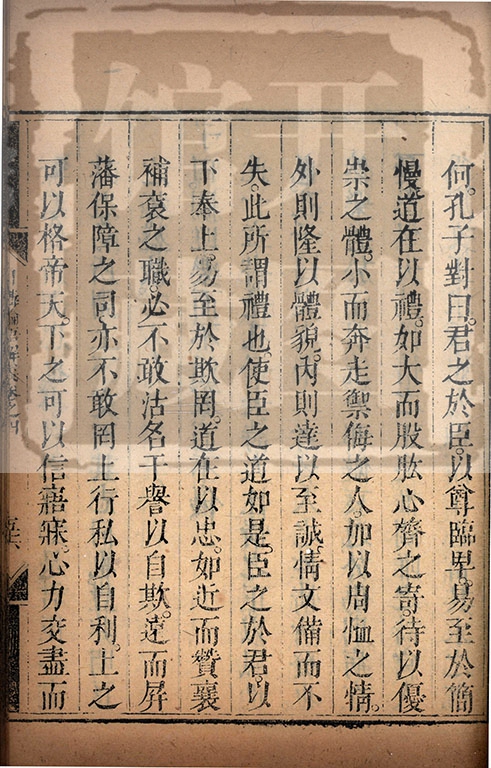 何。孔子對曰。君之於臣。以尊臨卑。易至於簡
慢。道在以禮。如大而股肱心膂之寄。待以優
崇之體。小而奔走禦侮之人。加以周恤之情。
外則隆以體貌。內則達以至誠。情文備而不
失。此所謂禮也。使臣之道如是。臣之於君。以
下奉上。易至於欺罔。道在以忠。如近而贊襄
補袞之職。必不敢沽名干譽以自欺。遠而屏
藩保障之司。亦不敢罔上行私以自利。上之
可以格帝天。下之可以信寤寐。心力交盡而